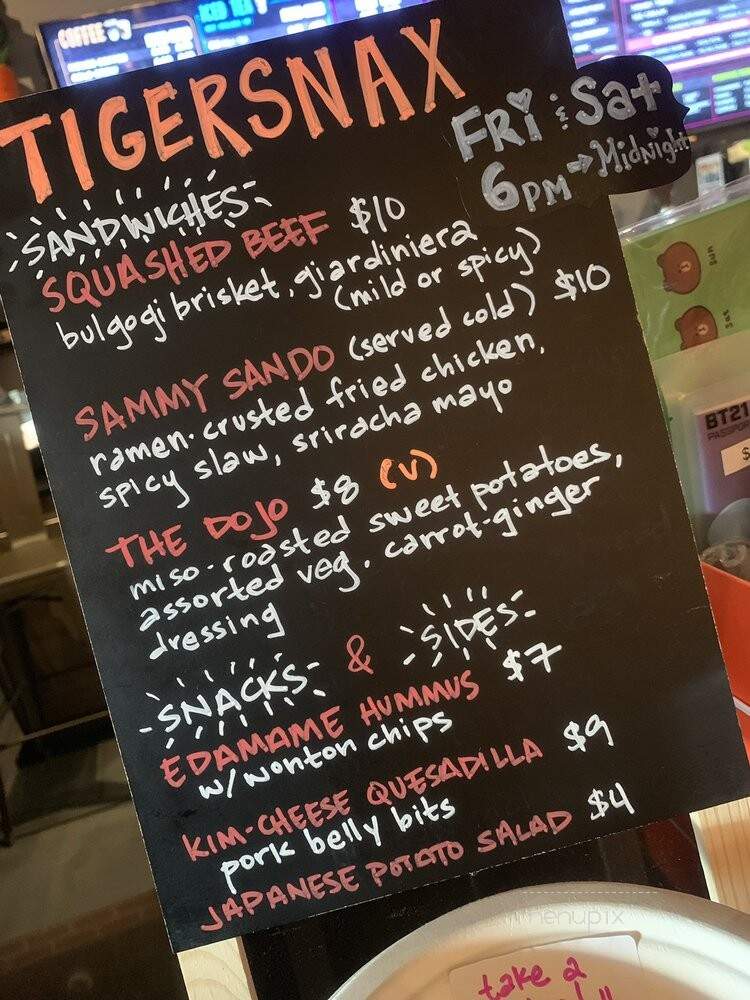 COFFEE
ICED TEA
TIGERSNAX
FRi & Sat
6PM → Midnight
SANDWICHES
SQUASHED BEEF $10
bulgogi brisket, giardiniera
(mild or spicy)
SAMMY SANDO (served cold) $10
ramen-crusted fried chicken,
spicy slaw, sriracha mayo
THE DOJO $8 (V)
miso-roasted sweet potatoes,
assorted veg, carrot-ginger
dressing
SNACKS & SIDES
EDAMAME HUMMUS $7
w/ wonton chips
KIM-CHEESE QUESADILLA $9
pork belly bits
JAPANESE POTATO SALAD $4
Sun
Sat
BT21
PASSPORT
$
menupix
take a